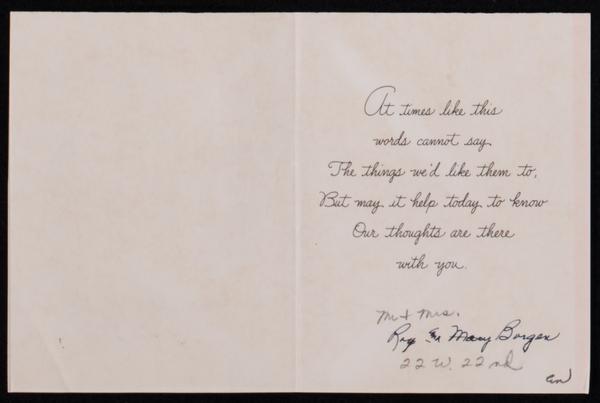 At times like this
words cannot say
The things we'd like them to,
But may it help today to know
Our thoughts are there
with you.
Mr + Mrs.
Mary Borgen
22 W. 22nd